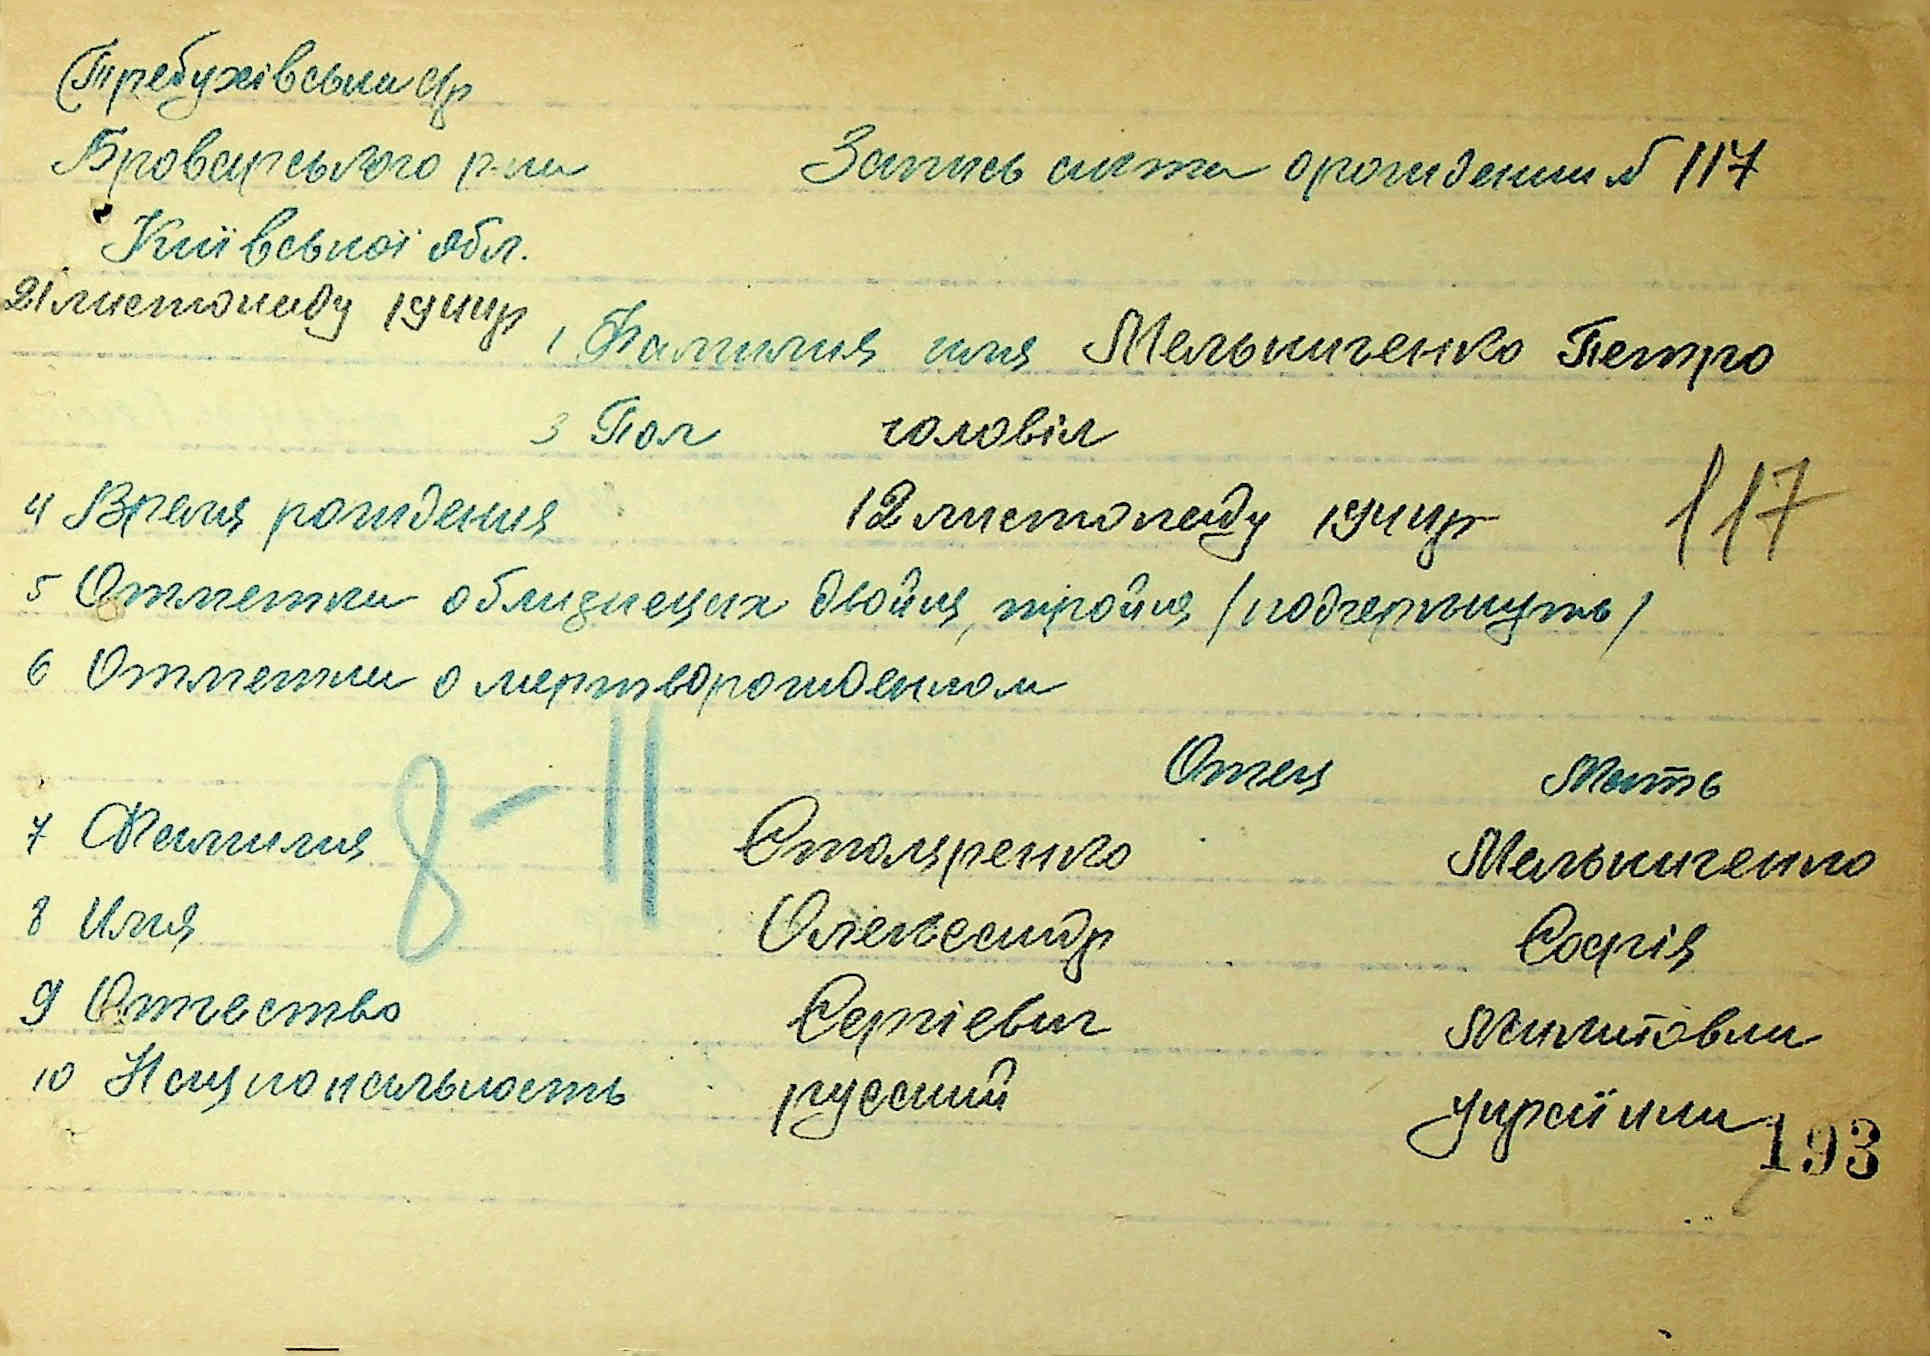 Требухівська с/р
Броварського р-на
Запись акта о рождении № 117
Київської обл.
21 листопаду 1944р
1 Фамилия имя Мельниченко Петро
3 Пол чоловіл
4 Время рождения 12 листопаду 1944р
117
5 Отметки о близнецах двойня, тройня /подчеркнуть/
6 Отметки о мертворожденном
8-11
Отец Мать
7 Фамилия Столяренко Мельниченко
8 Имя Олександр Софія
9 Отчество Сергіевич
10 Национальность русский українка
193